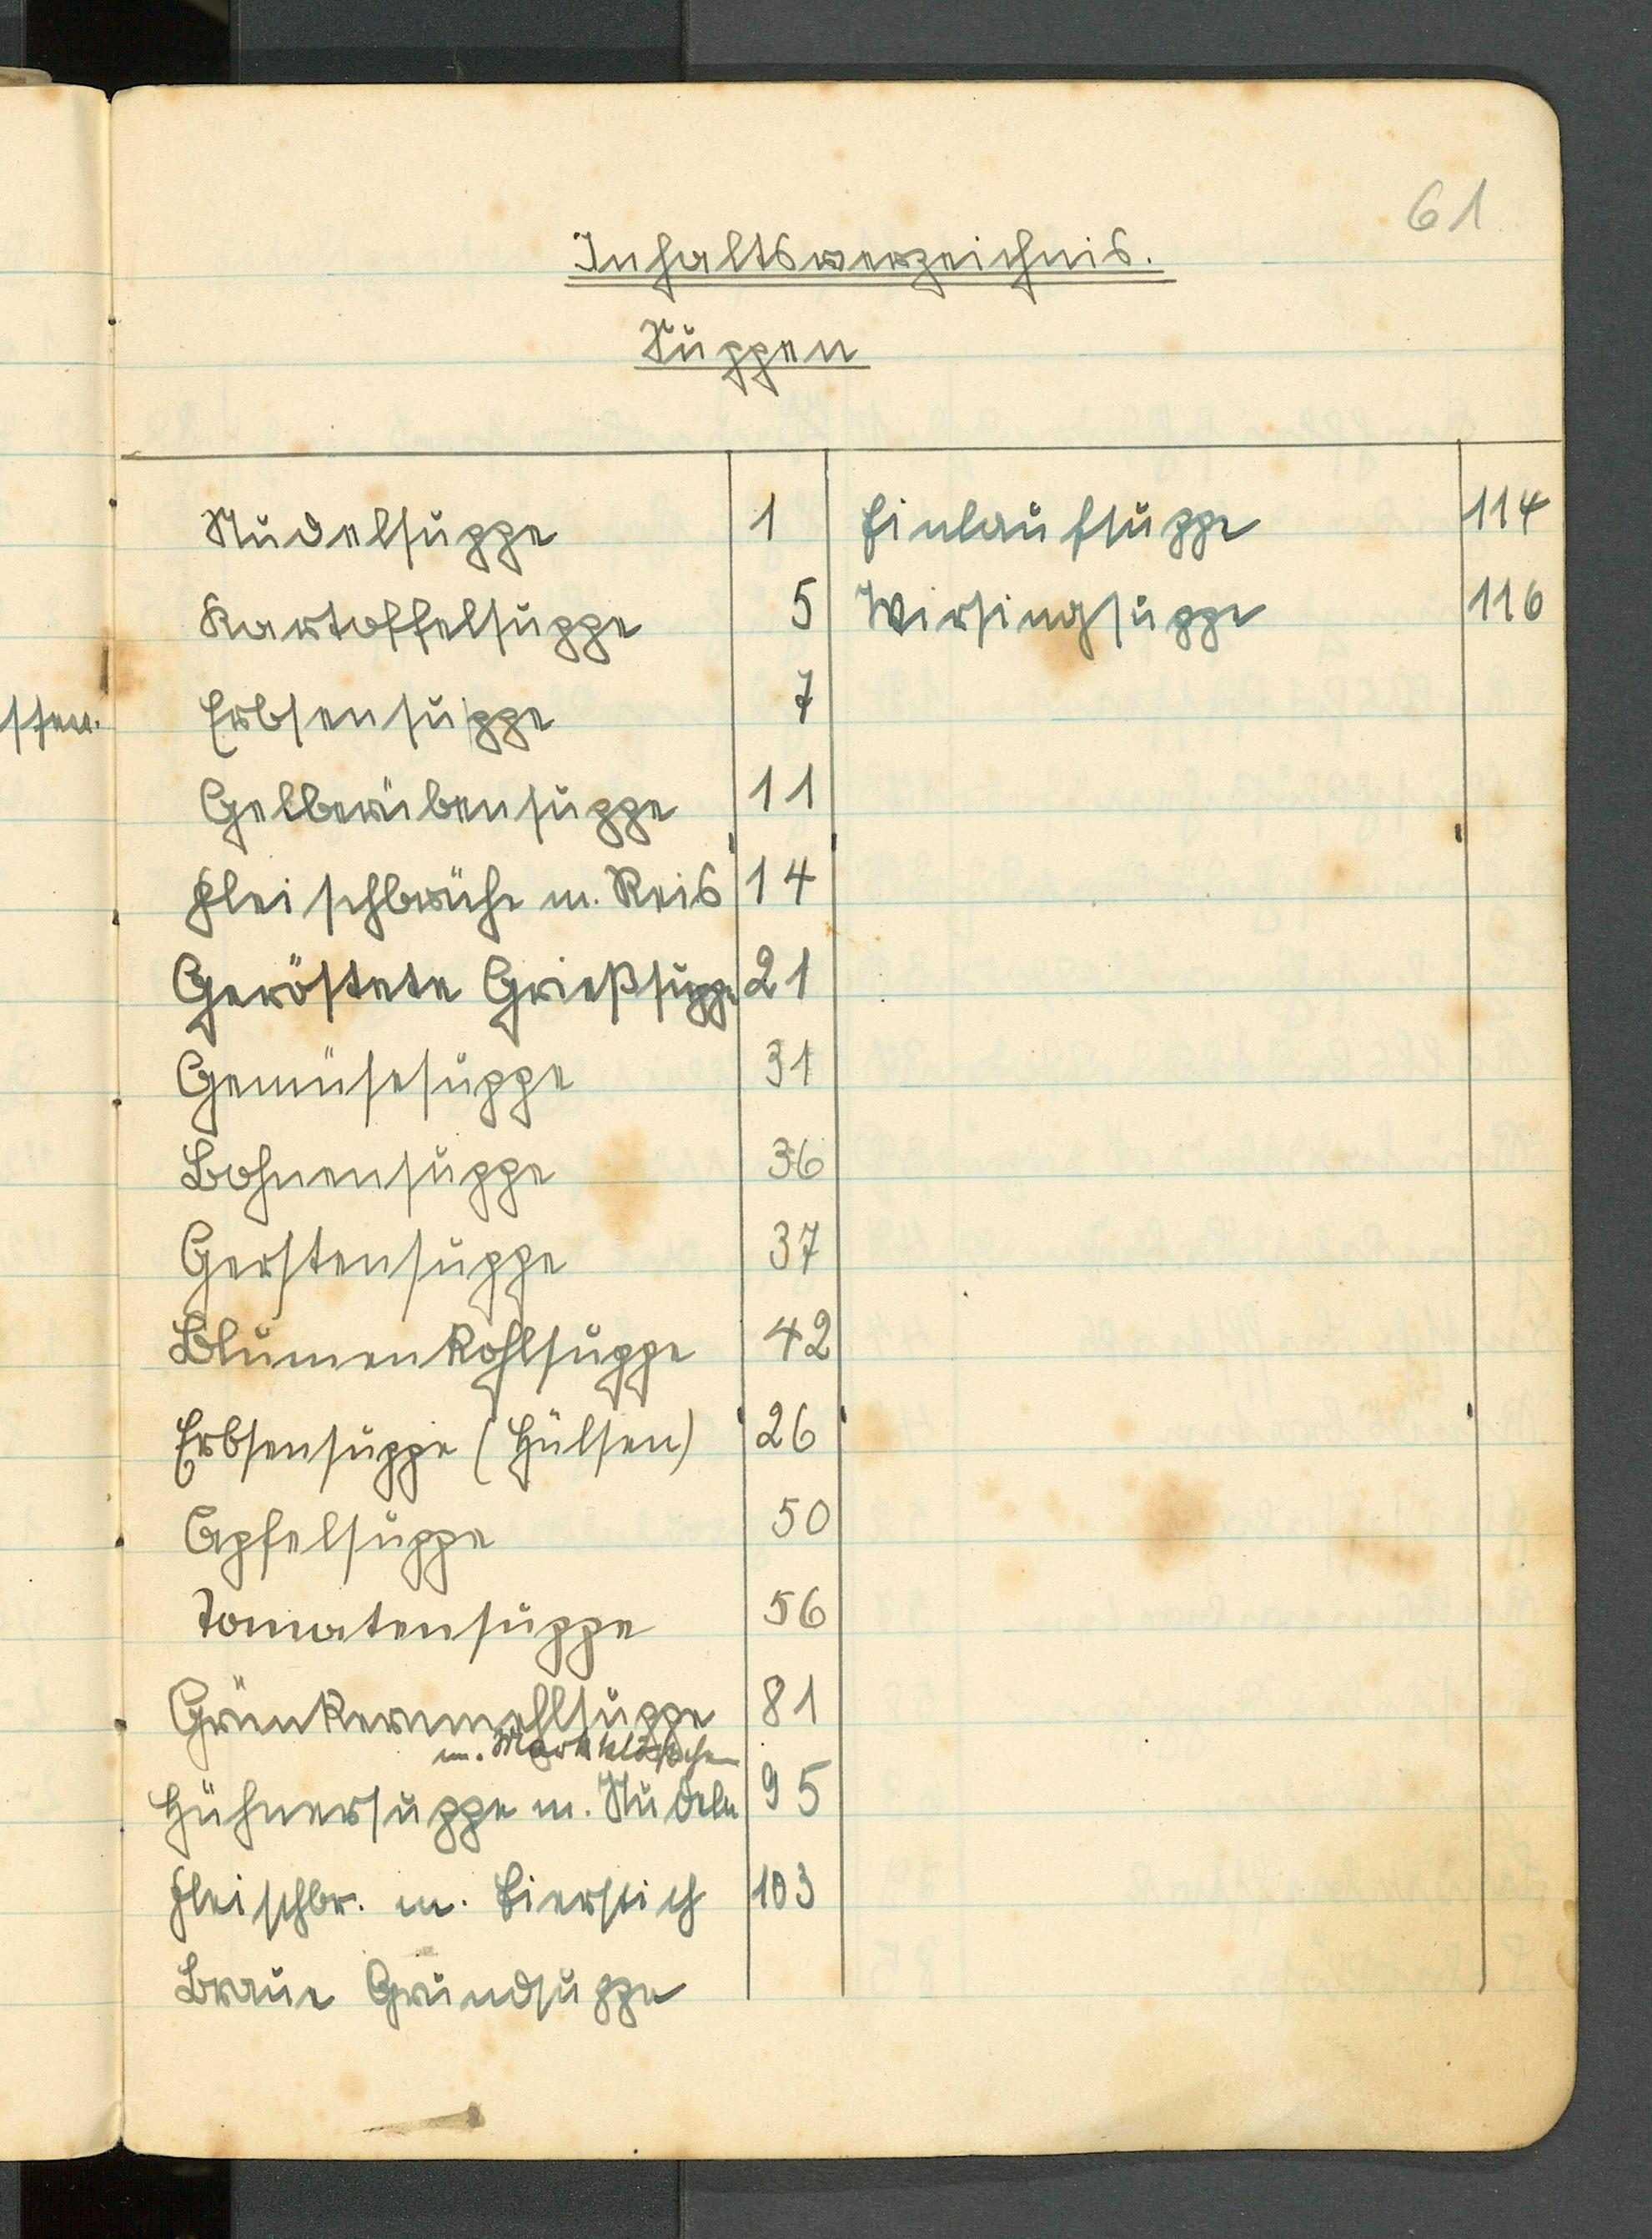 61
Inhaltsverzeichnis.
Suppen
Nudelsuppe 1
Kartoffelsuppe 5
Erbsensuppe 7
Gelberübensuppe 11
Fleischbrühe m. Reis 14
Geröstete Grießsuppe 21
Gemüsesuppe 31
Bohnensuppe 36
Gerstensuppe 37
Blumenkohlsuppe 42
Erbsensuppe (Hülsen) 26
Apfelsuppe 50
Tomatensuppe 56
Grünkernmehlsuppe 81
m. Markklöschen
Hühnersuppe m. Nudeln 95
Fleischbr. m. Eierstich 103
Braune Grundsuppe
Einlaufsuppe 114
Wirsingsuppe 116